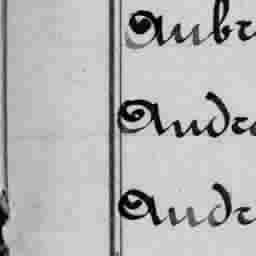 Aubr
Andre
Andr